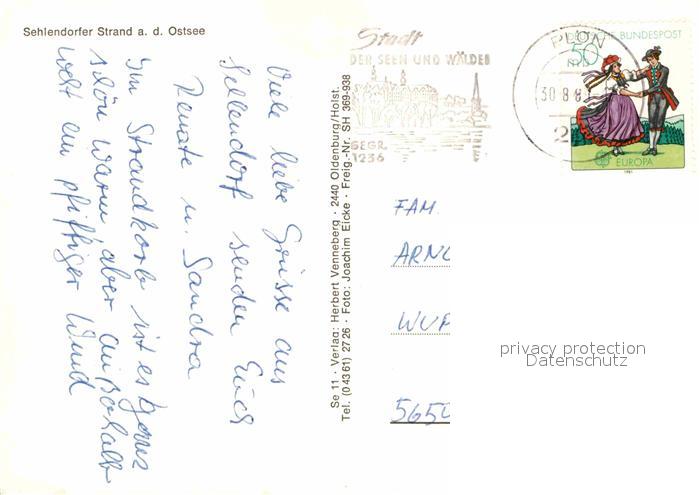 Sehlendorfer Strand a. d. Ostsee
Viele liebe Grüsse aus
Sellendorf senden Euch
Renate u. Sandra
Im Strandkorb ist es ganz
schön warm, aber außerhalb
weht ein pfiffiger Wind
Se 11 · Verlag: Herbert Venneberg · 2440 Oldenburg/Holst.
Tel. (04361) 2726 · Foto: Joachim Eicke · Freig.-Nr. SH 369-938
Stadt
DER SEEN UND WÄLDER
GEGR.
1236
PLÖN
30.8.8
2
DEUTSCHE BUNDESPOST
50
EUROPA
1981
FAM.
ARNO
WUP
5650
privacy protection
Datenschutz